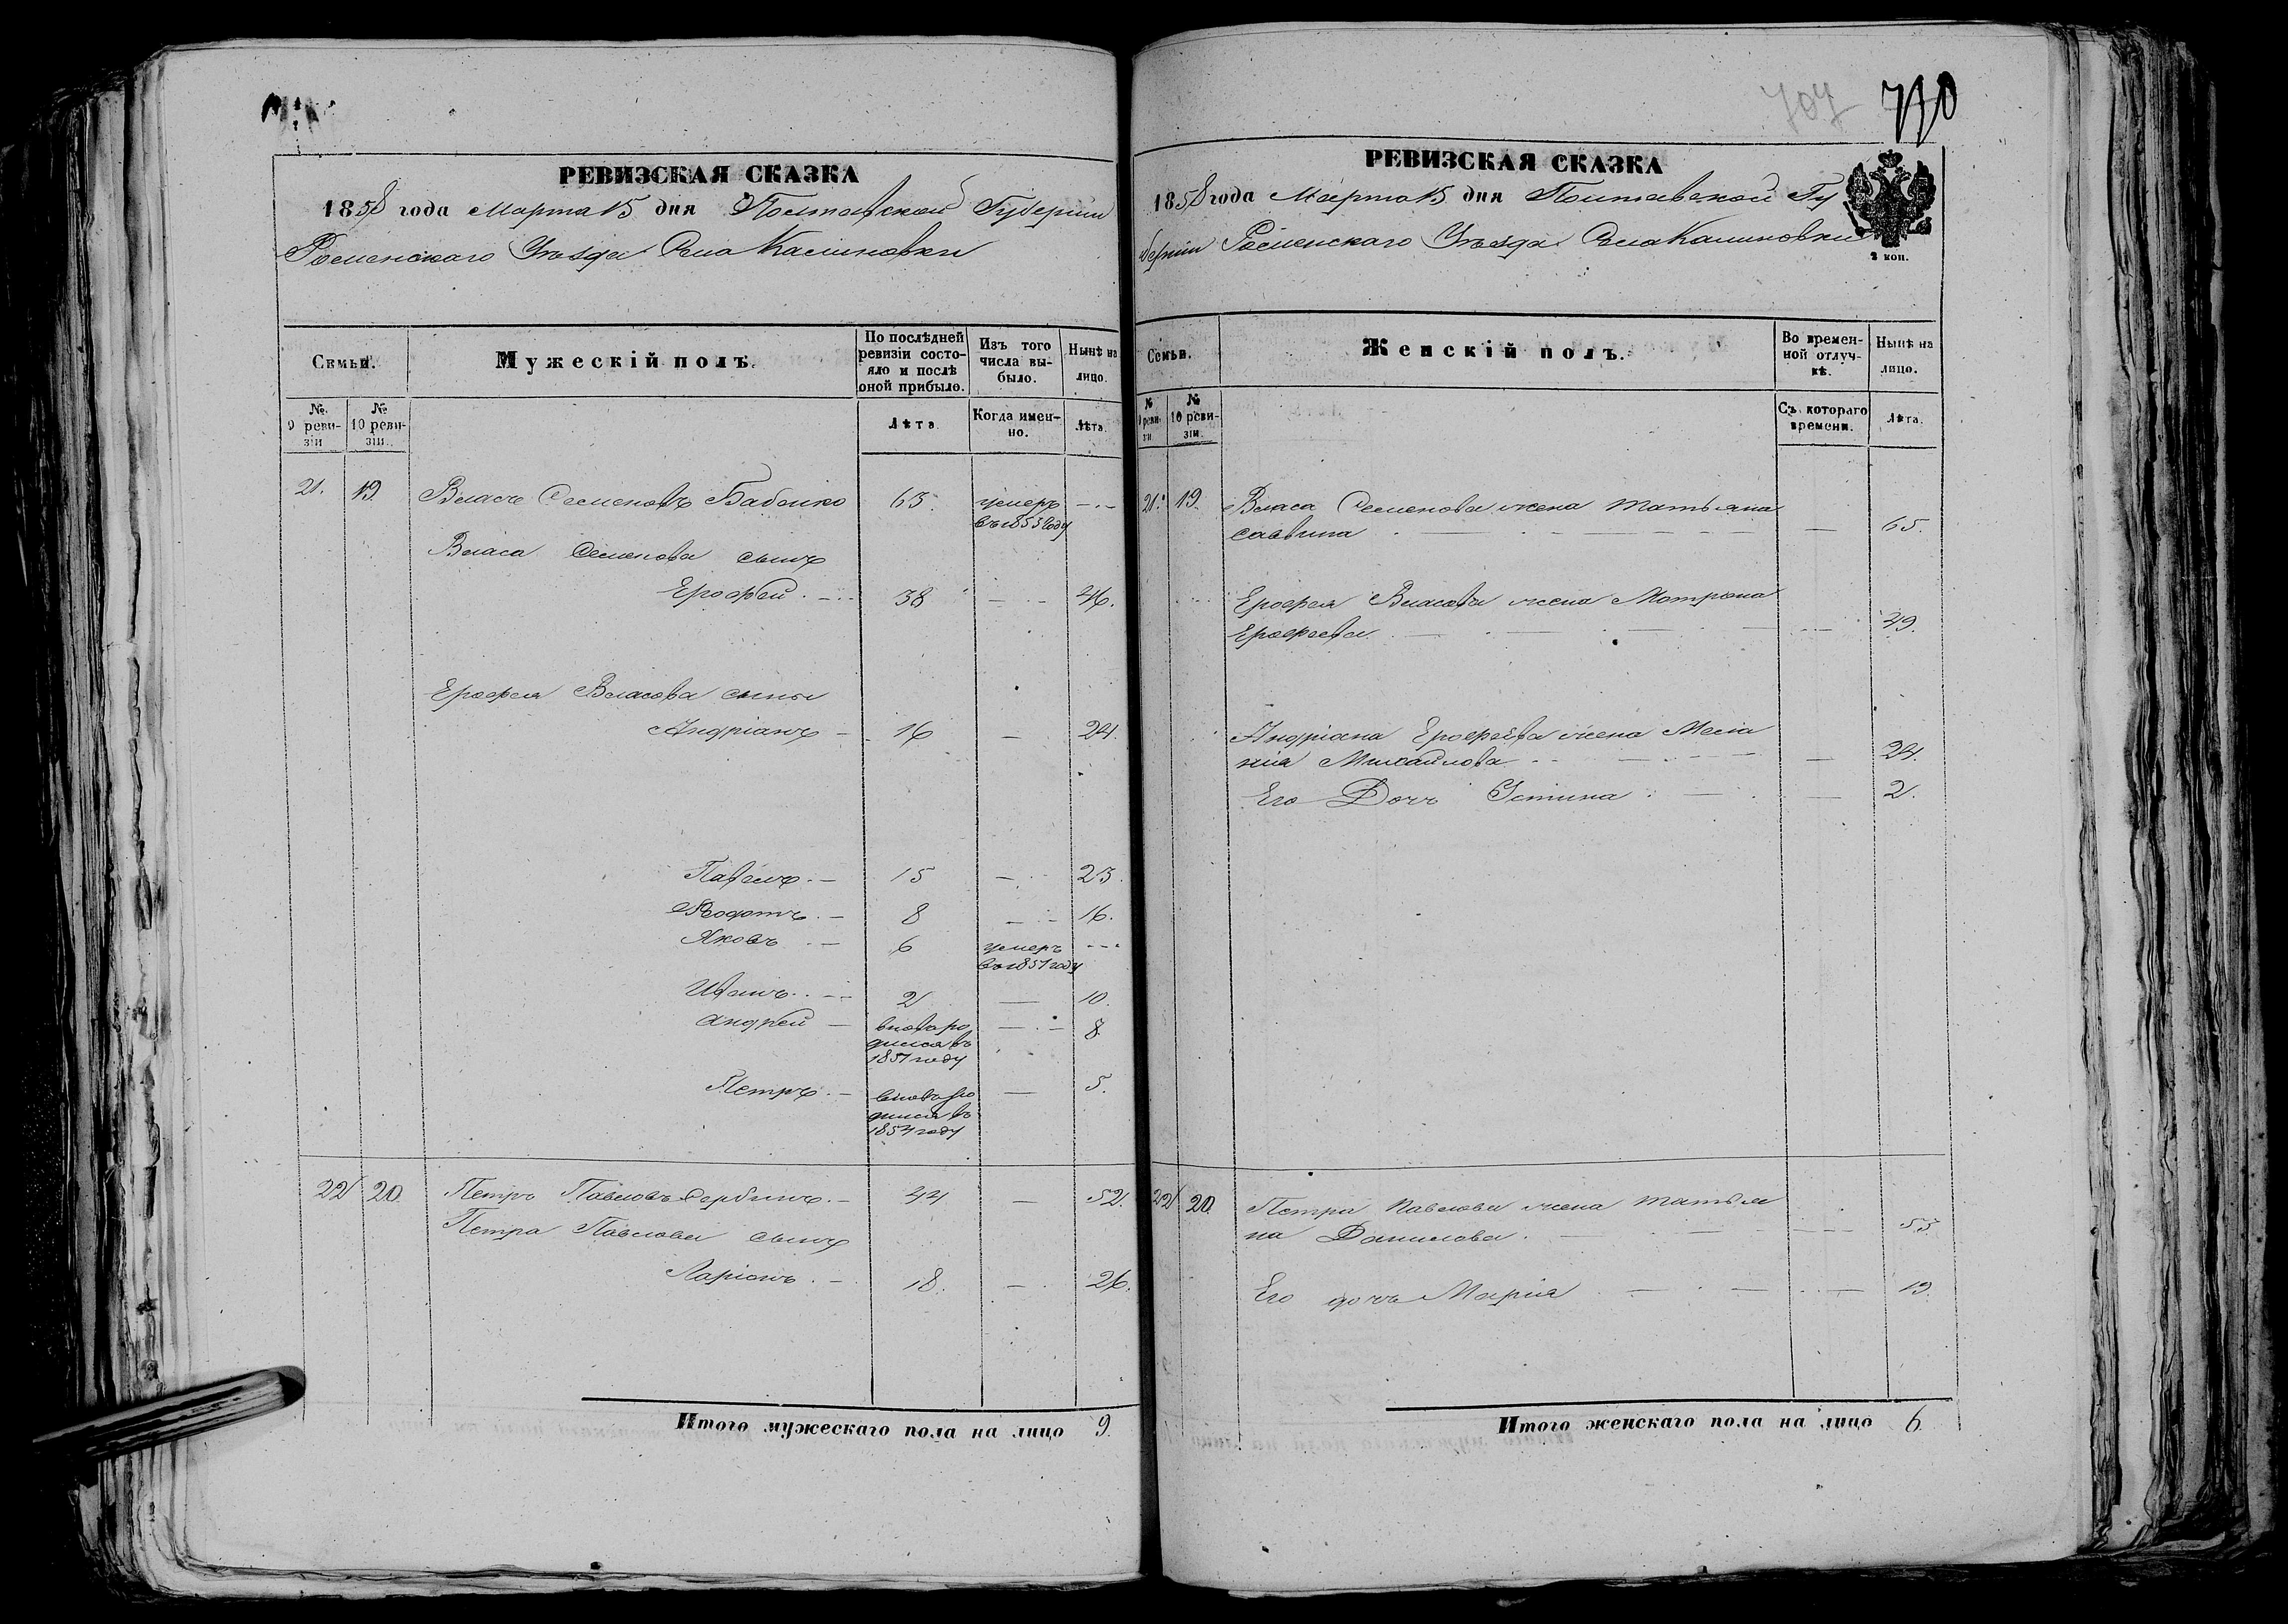 707 710
РЕВИЗСКАЯ СКАЗКА
1858 года Марта 15 дня Полтавской Губернии
Роменскаго Уѣзда Села Калиновки
Семьи.
Мужескій полъ.
По послѣдней ревизіи состояло и послѣ оной прибыло.
Изъ того числа выбыло.
Нынѣ на лицо.
№ 9 ревизіи
№ 10 ревизіи.
Лѣта
Когда именно.
Лѣта.
21. 19. Власъ Семеновъ Бабенко 63. умеръ въ 1853 году
Власа Семенова сынъ
Ерофей. 38 — 46.
Ерофея Власова сыны
Андріанъ — 16 — 24.
Павелъ. — 15 — 23.
Ѳеодотъ. — 8 — 16.
Яковъ — 6 умеръ въ 1857 году
Иванъ. 2 — 10.
Андрей — вновь родился въ 1851 году — 8.
Петръ. — вновь родился въ 1854 году — 5.
22 20. Петръ Павловъ Сербинъ. — 44 — 52.
Петра Павлова сынъ
Ларіонъ. — 18. — 26.
Итого мужескаго пола на лицо 9.
РЕВИЗСКАЯ СКАЗКА
1858 года Марта 15 дня Полтавской Гу
берніи Роменскаго Уѣзда Села Калиновки
2 коп.
Семьи.
Женскій полъ.
Во временной отлучкѣ.
Нынѣ на лицо.
№ 9 ревизіи
№ 10 ревизіи.
Съ котораго времени.
Лѣта.
21. 19. Власа Семенова жена Татьяна
Саввина — 65.
Ерофея Власова жена Матрона
Ерофеева — 49.
Андріана Ерофеева жена Мела
нія Михайлова — 24.
Его Дочь Устина — 2.
22 20. Петра Павлова жена Татья
на Данилова. — 53
Его дочь Марія — 19.
Итого женскаго пола на лицо 6.